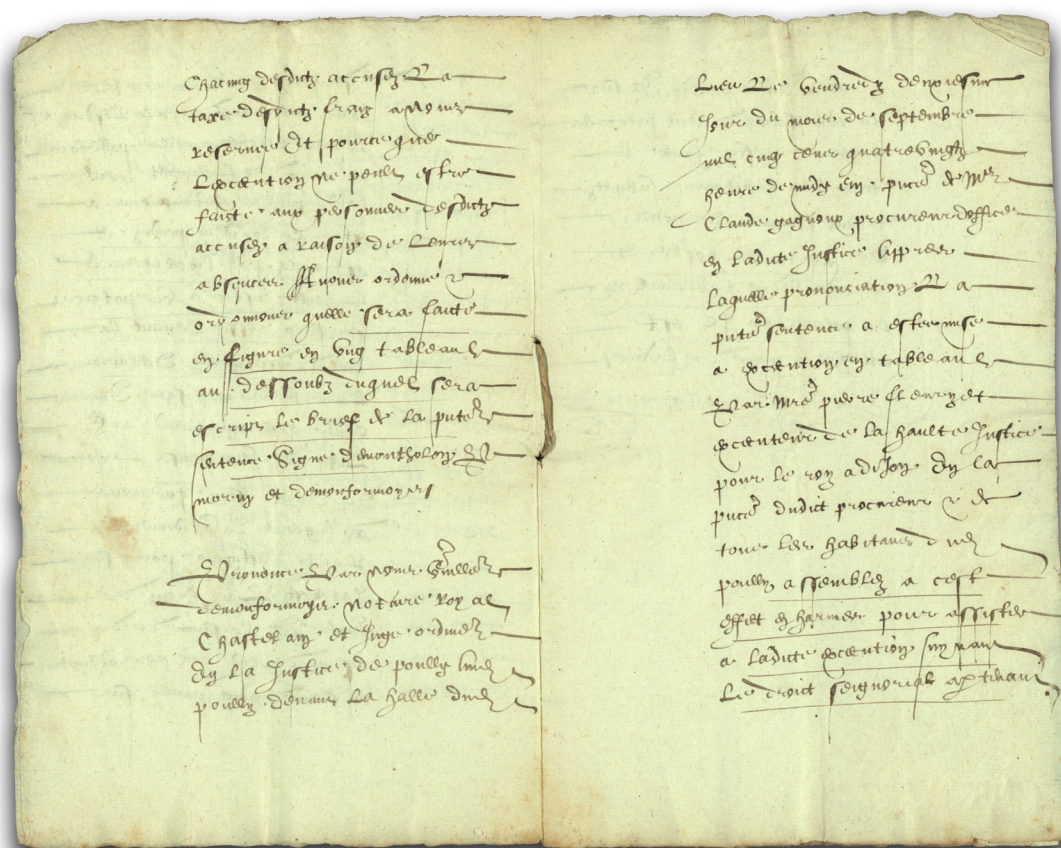 Chacung desdictz accusez La
taxe desdictz fraiz a nous
reservee Et pource que
Lexecution ne peult estre
faicte aux personnes desdictz
accusez a raison de Leurs
absences Avons ordonné &
ordonnons quelle sera faicte
en figure en ung tableaul
au dessoubz duquel sera
escript le brief de la pnte
sentence Signé demontholon
morin et demonformoyers
Prononcé Par nous
demonformoyer notaire Royal
Chastelain et Juge ordinere
En La Justice de poully
poully devant La halle dudict
Lieu Le Vendredy deuxiesme
Jour du mois de septembre
mil cinq cens quatre vingtz
heure de midy en pnce de Mre
Claude gagnoux procureur doffice
en Ladicte Justice Appres
Laquelle prononciation La
pnte sentence a esté mise
a execution en tableaul
Par Mre pierre
executeur de la haulte Justice
pour le roy a diJon En la
pnce dudict procureur & de
tous les habitans dudict
poully assemblez a cest
effect en harmes pour assister
a Ladicte execution suyvant
Le droict seignorial